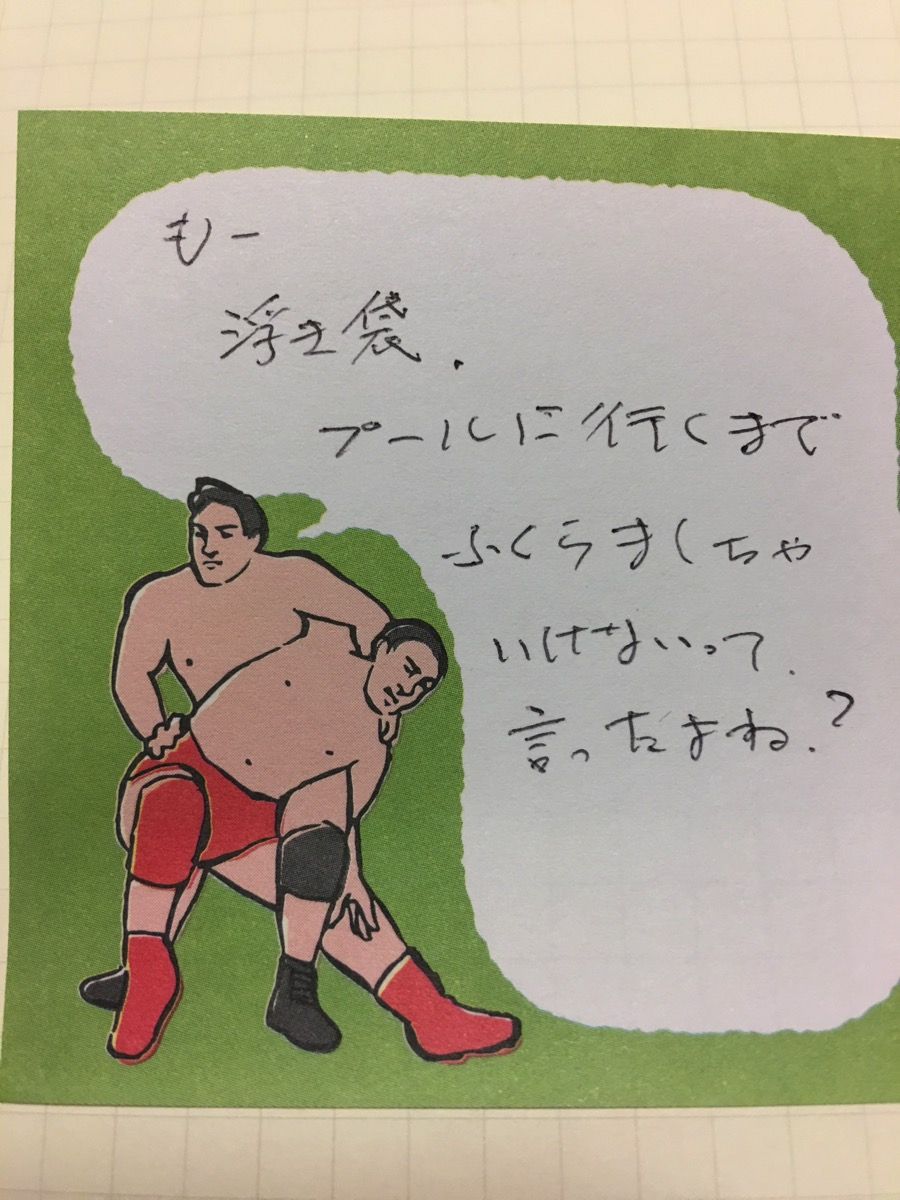 もー
浮き袋.
プールに行くまで
ふくらましちゃ
いけないって.
言ったよね.?